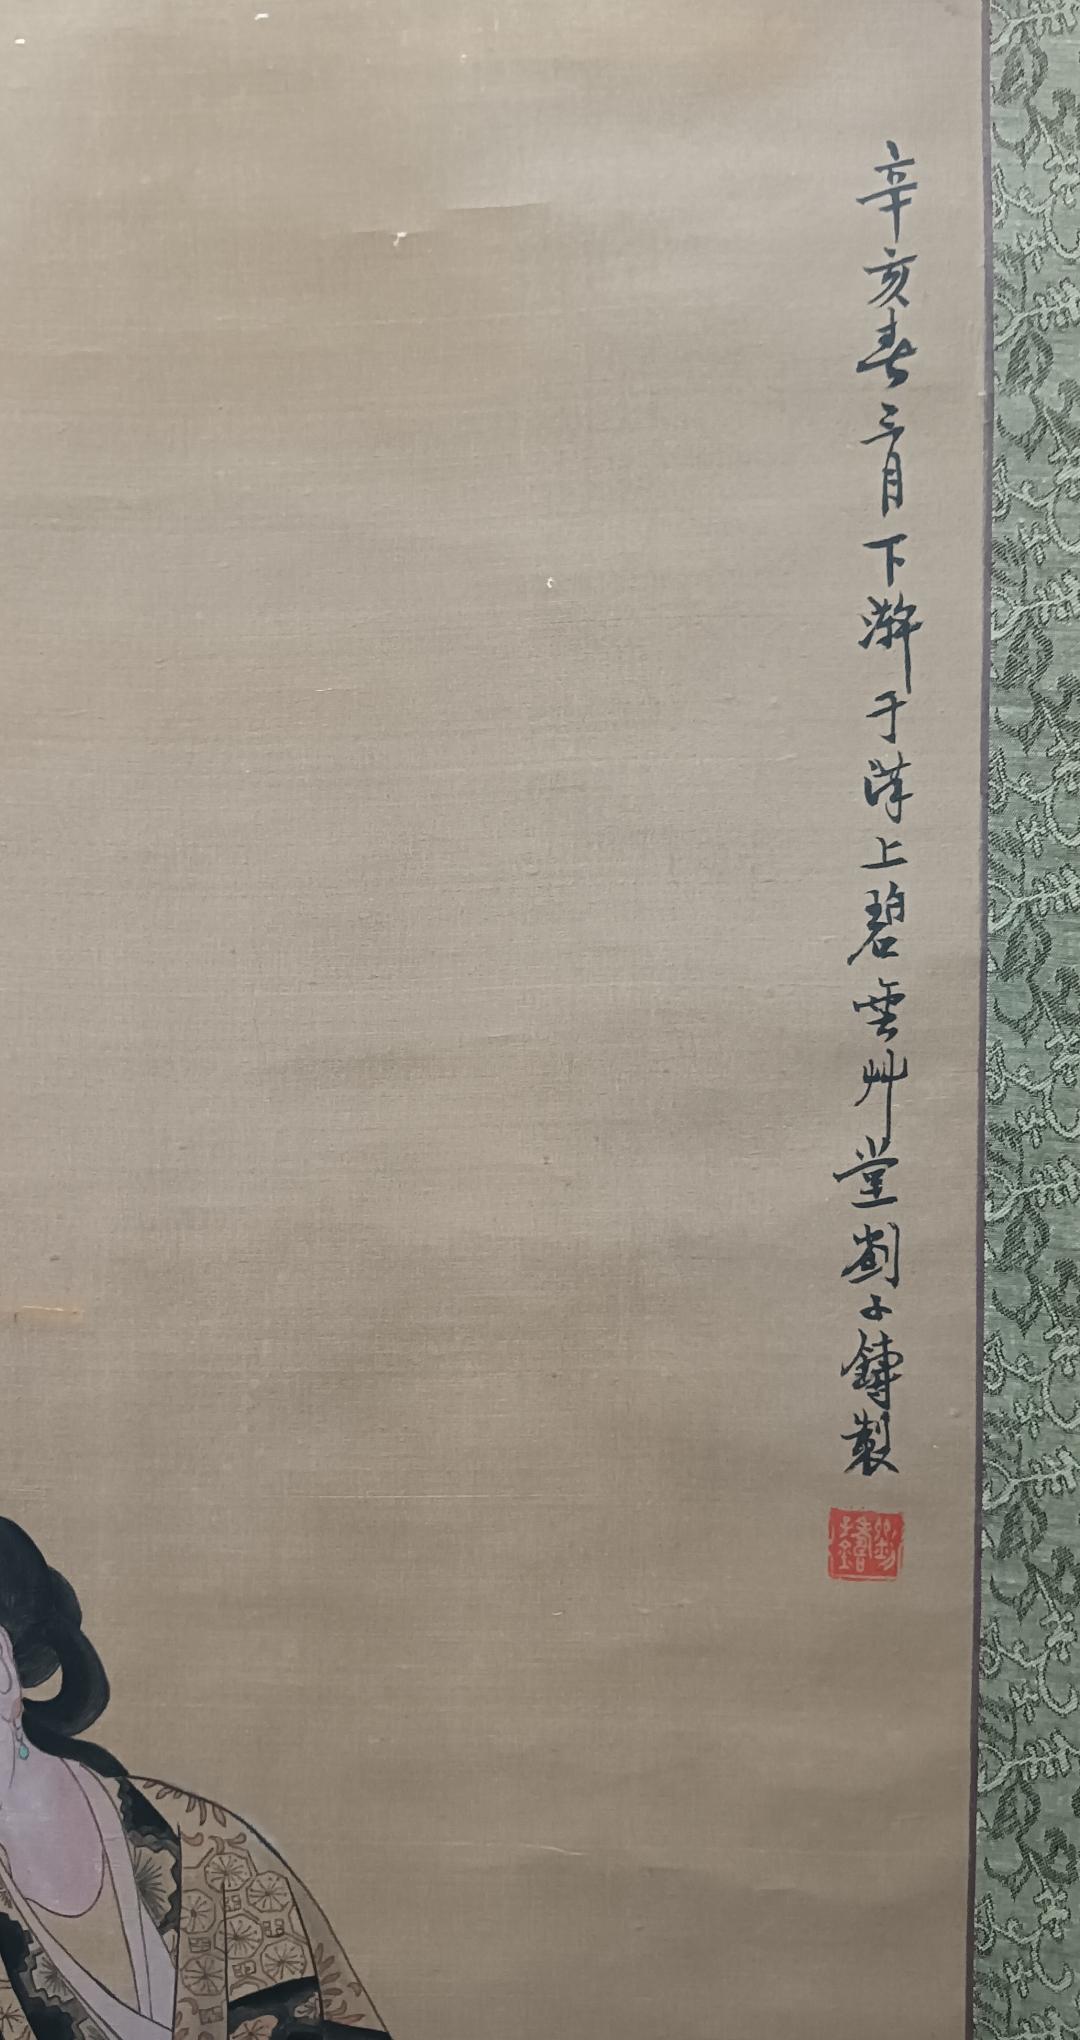 辛亥春三月下澣于漢上碧雲艸堂劉子鑄製